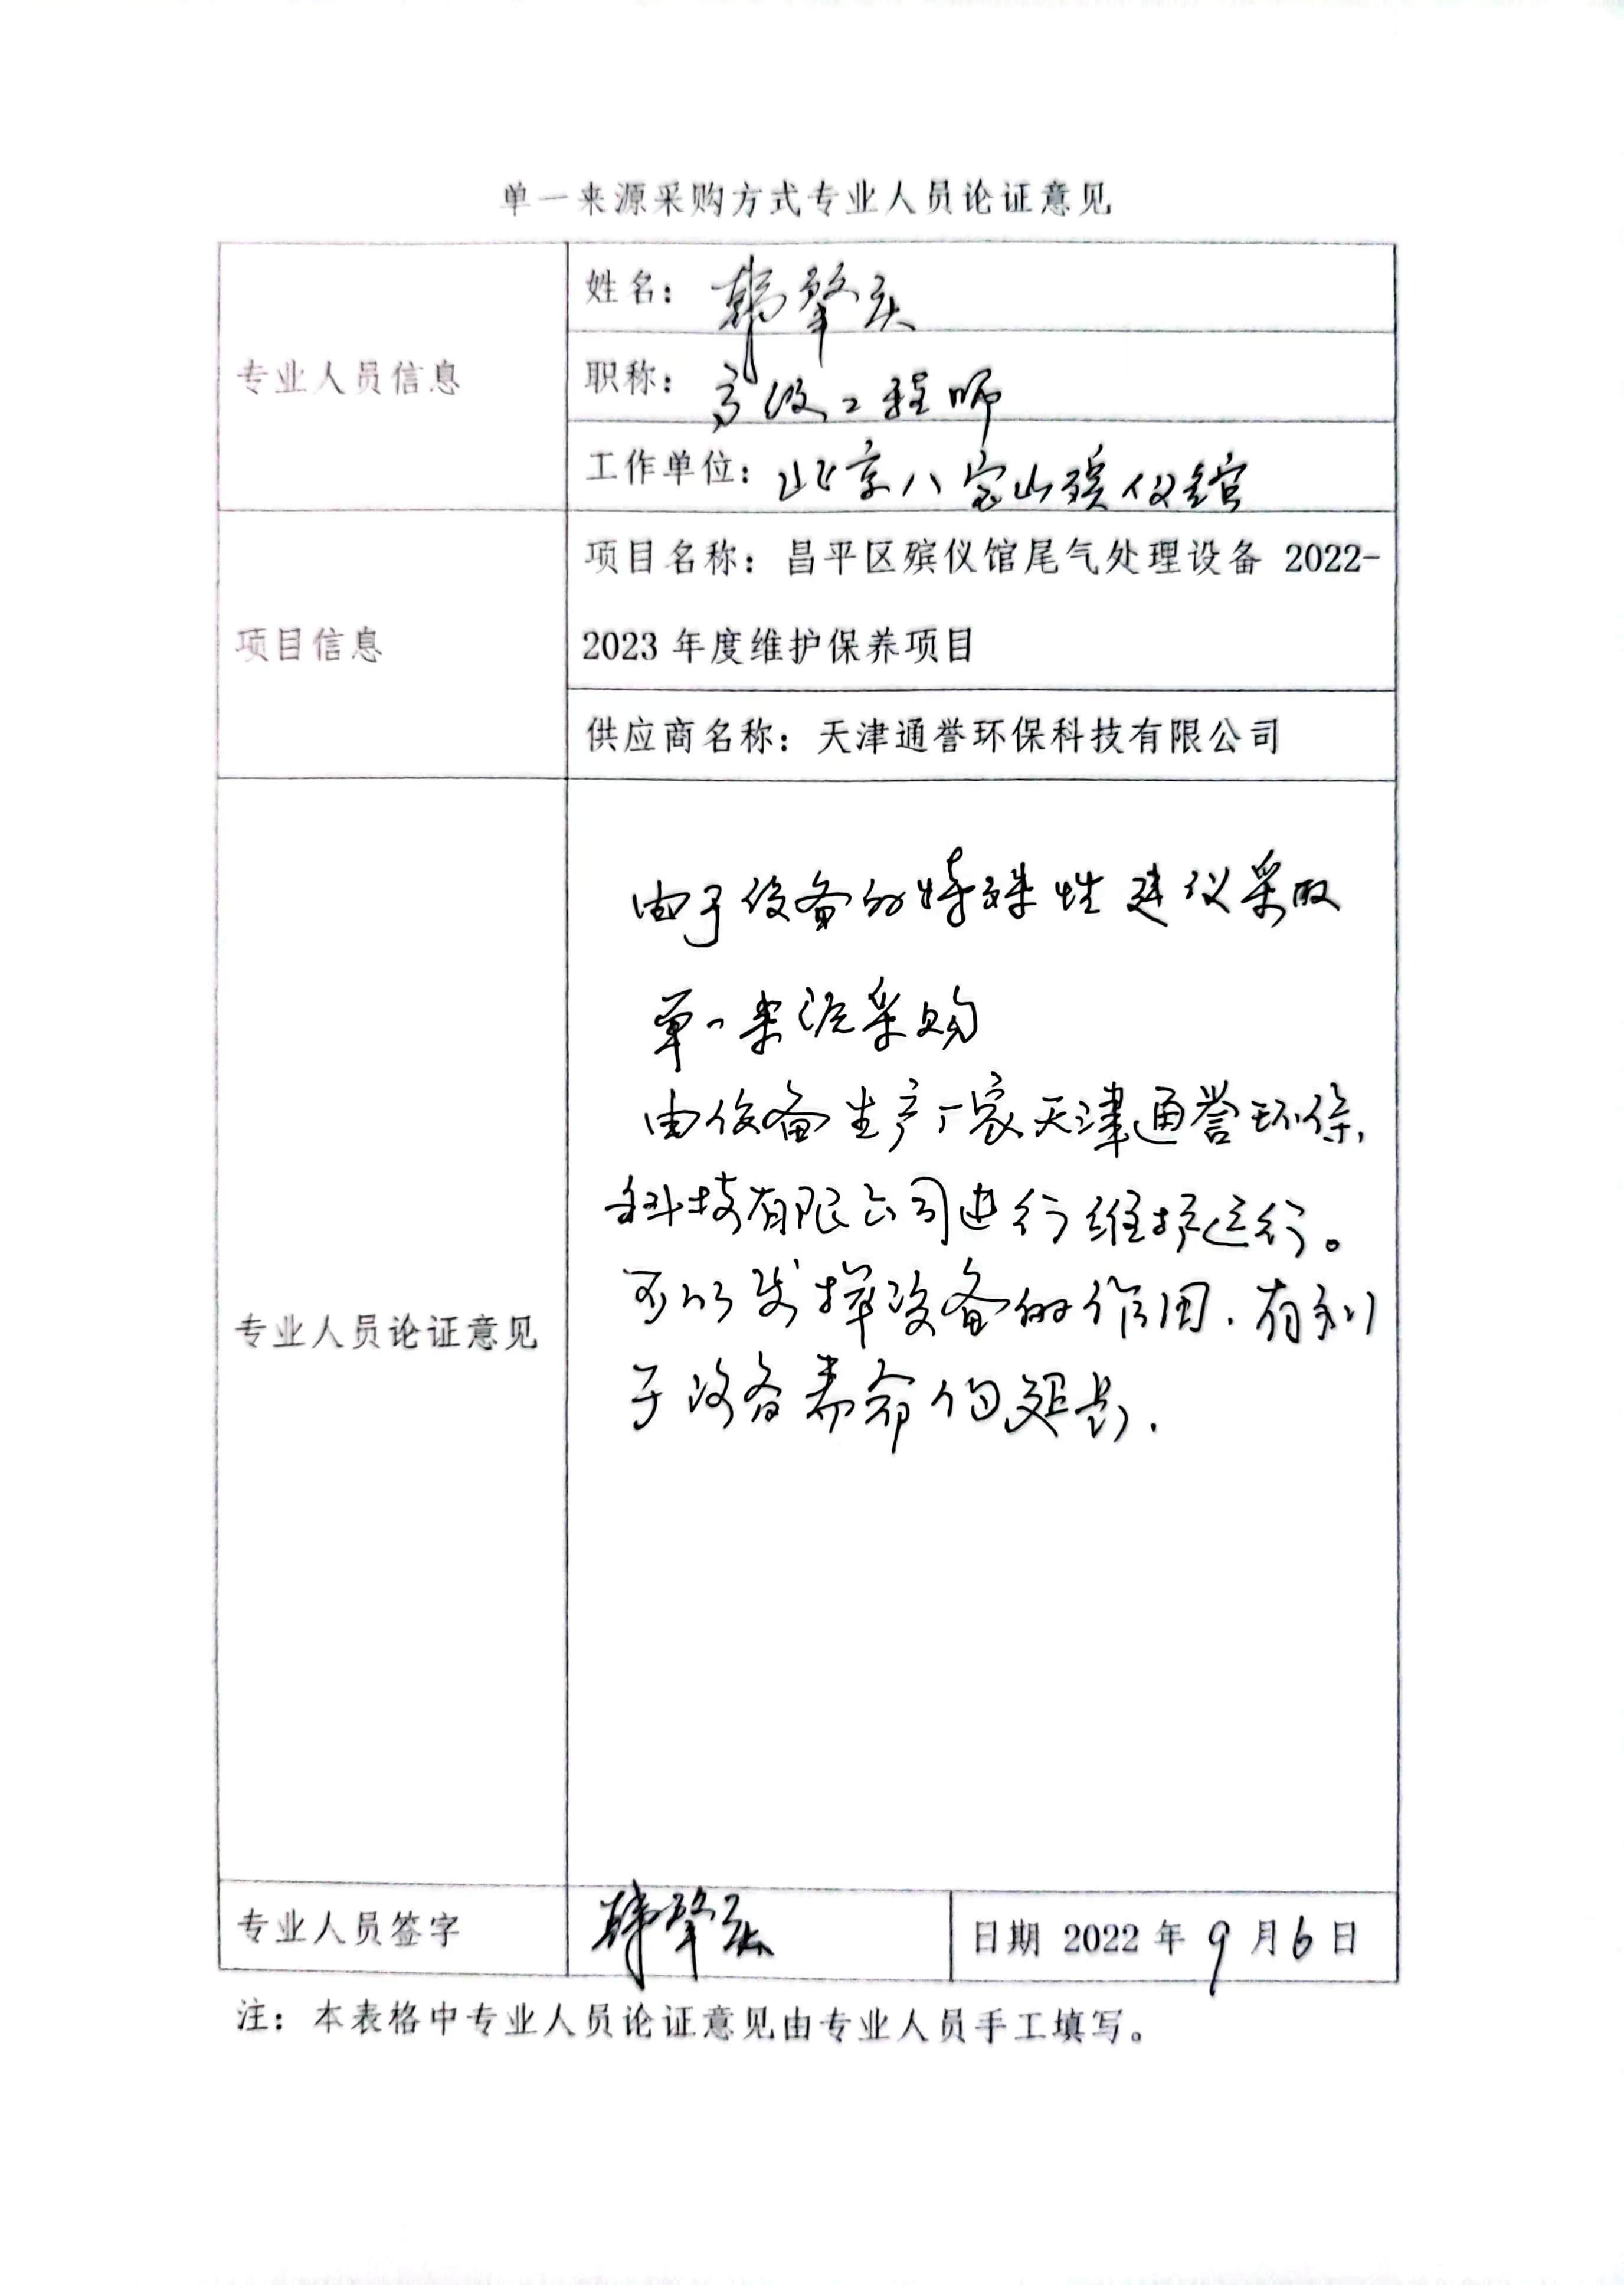 单一来源采购方式专业人员论证意见
专业人员信息
姓名：韩肇庆
职称：高级工程师
工作单位：北京八宝山殡仪馆
项目信息
项目名称：昌平区殡仪馆尾气处理设备 2022-
2023 年度维护保养项目
供应商名称：天津通誉环保科技有限公司
专业人员论证意见
由于设备的特殊性建议采取
单一来源采购
由设备生产厂家天津通誉环保
科技有限公司进行维护运行。
可以发挥设备的作用.有利
于设备寿命的延长.
专业人员签字
韩肇庆
日期 2022 年 9 月 6 日
注：本表格中专业人员论证意见由专业人员手工填写。